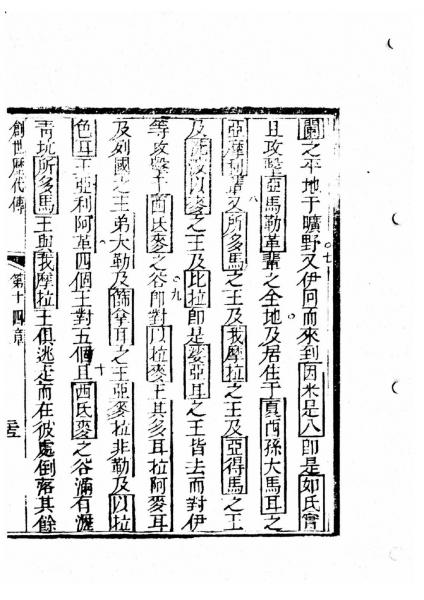 蘭之平地于曠野又伊回而來到因米是八即是如氏實
且攻擊亞馬勒革輩之全地及居住于夏西孫大馬耳之
亞摩利輩又所多馬之王及我摩拉之王及亞得馬之王
及洗波以麥之王及比拉即是婆亞耳之王皆去而對伊
等攻擊于西氏麥之谷即對以拉麥王其多耳拉阿麥耳
及列國之王弟大勒及篩拿耳之王亞麥拉非勒及以拉
色耳王亞利阿革四個王對五個且西氏麥之谷滿有瀝
青坑所多馬王與我摩拉王俱逃走而在彼處倒落其餘
創世歷代傳 第十四章
七
八
九
十